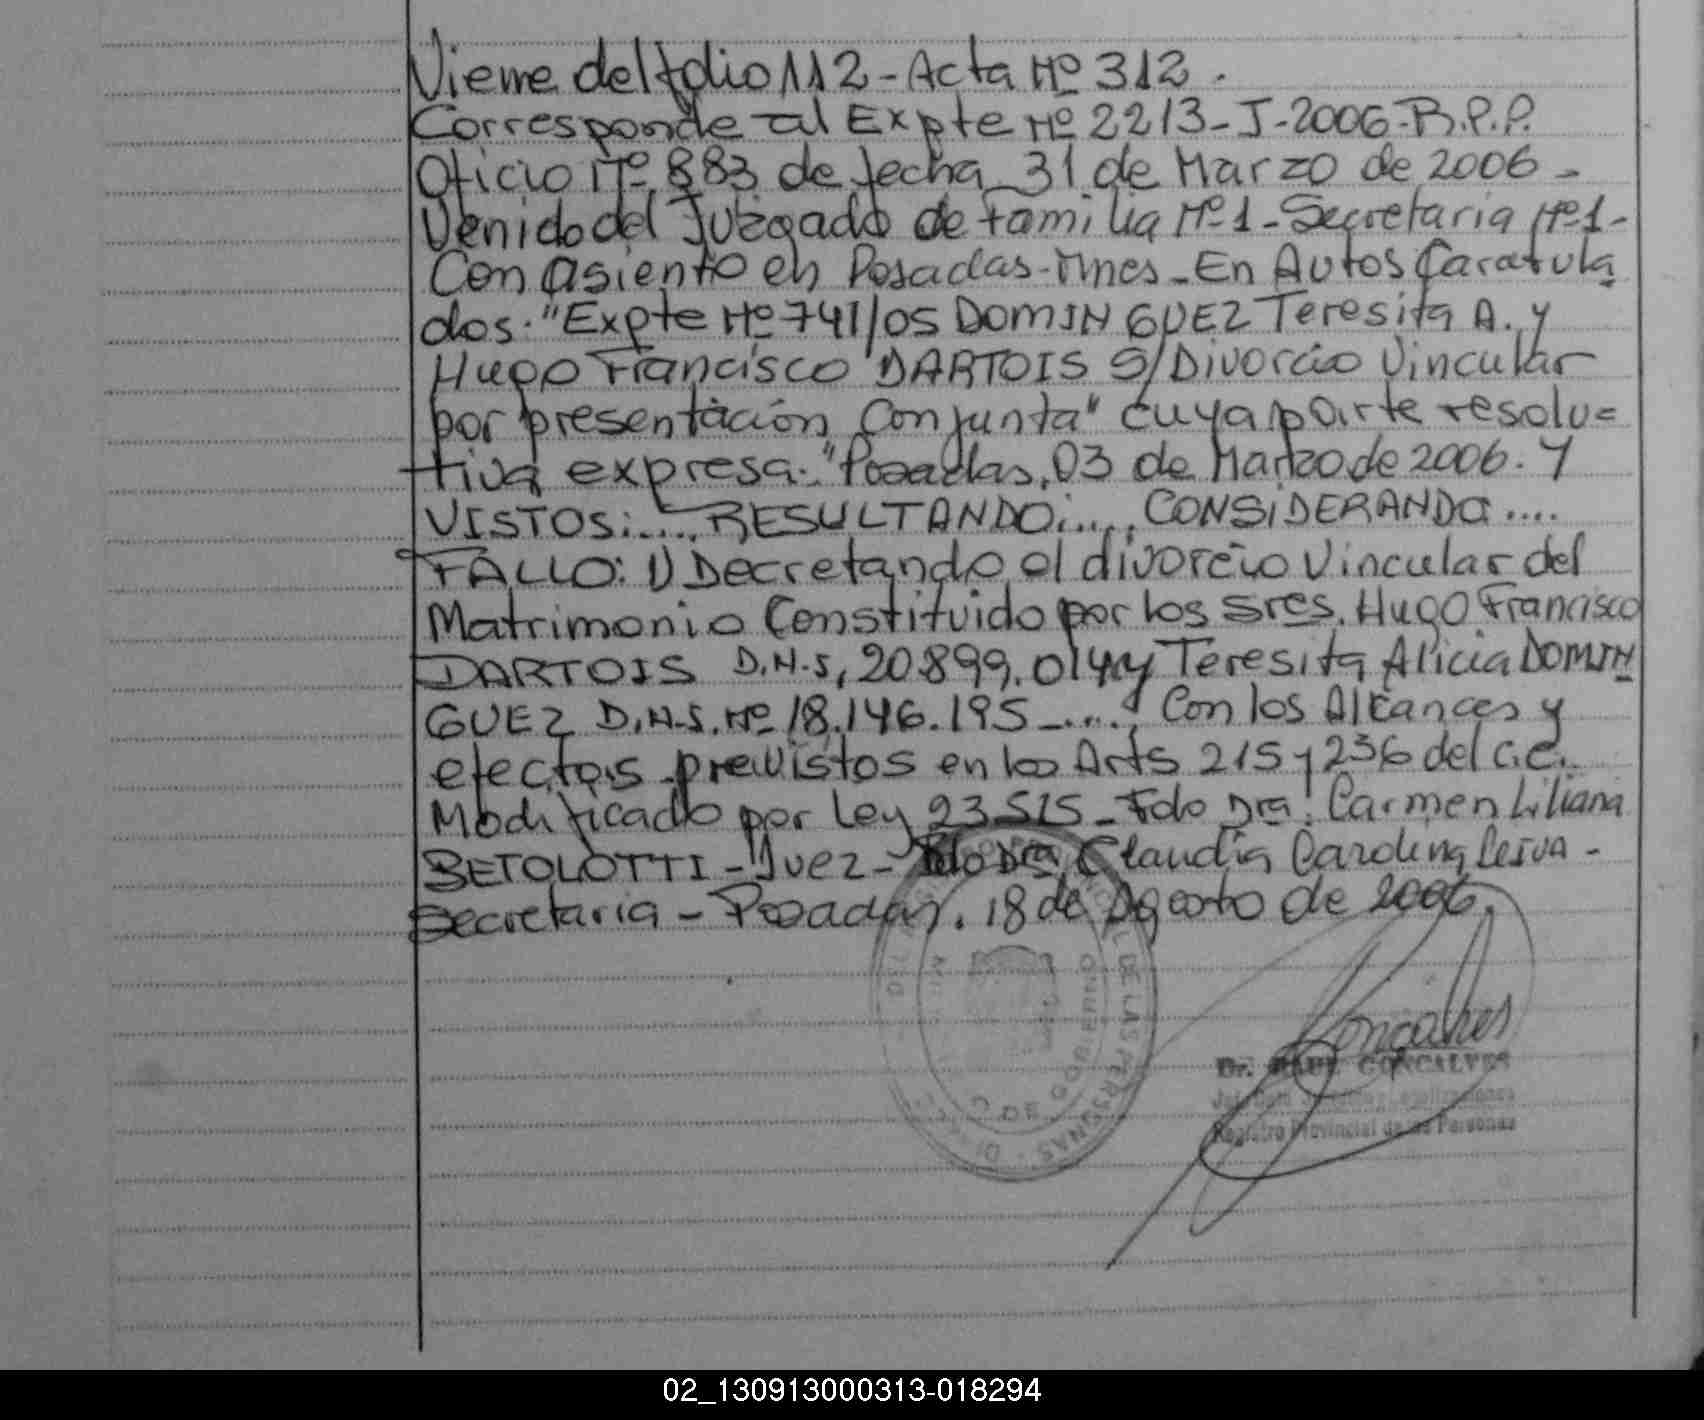 Viene del folio 112 - Acta Nº 312.
Corresponde al Expte Nº 2213-J-2006-R.P.P.
Oficio Nº 883 de fecha 31 de Marzo de 2006 -
Venido del Juzgado de familia Nº 1 - Secretaria Nº 1 -
Con asiento en Posadas - Mnes - En Autos Caratula
dos: "Expte Nº 741/05 DOMINGUEZ Teresita A. y
Hugo Francisco DARTOIS S/ Divorcio Vincular
por presentación Conjunta" cuya parte resolu=
tiva expresa: "Posadas, 03 de Marzo de 2006. Y
VISTOS:..... RESULTANDO:..... CONSIDERANDO.....
FALLO: 1) Decretando el divorcio Vincular del
Matrimonio Constituido por los Sres. Hugo Francisco
DARTOIS D.N.I. 20.899.014 y Teresita Alicia DOMIN
GUEZ D.N.I. Nº 18.146.195 -...., Con los Alcances y
efectos previstos en los Arts 215 y 236 del C.C.
Modificado por Ley 23515 - Fdo Dra. Carmen Liliana
BETOLOTTI - Juez - Fdo Dra Claudia Carolina Leiva -
Secretaria - Posadas, 18 de Agosto de 2006.
DE LAS PERSONAS
Goncalves
Dr. RAUL GONCALVES
Registro Provincial de las Personas
02_130913000313-018294